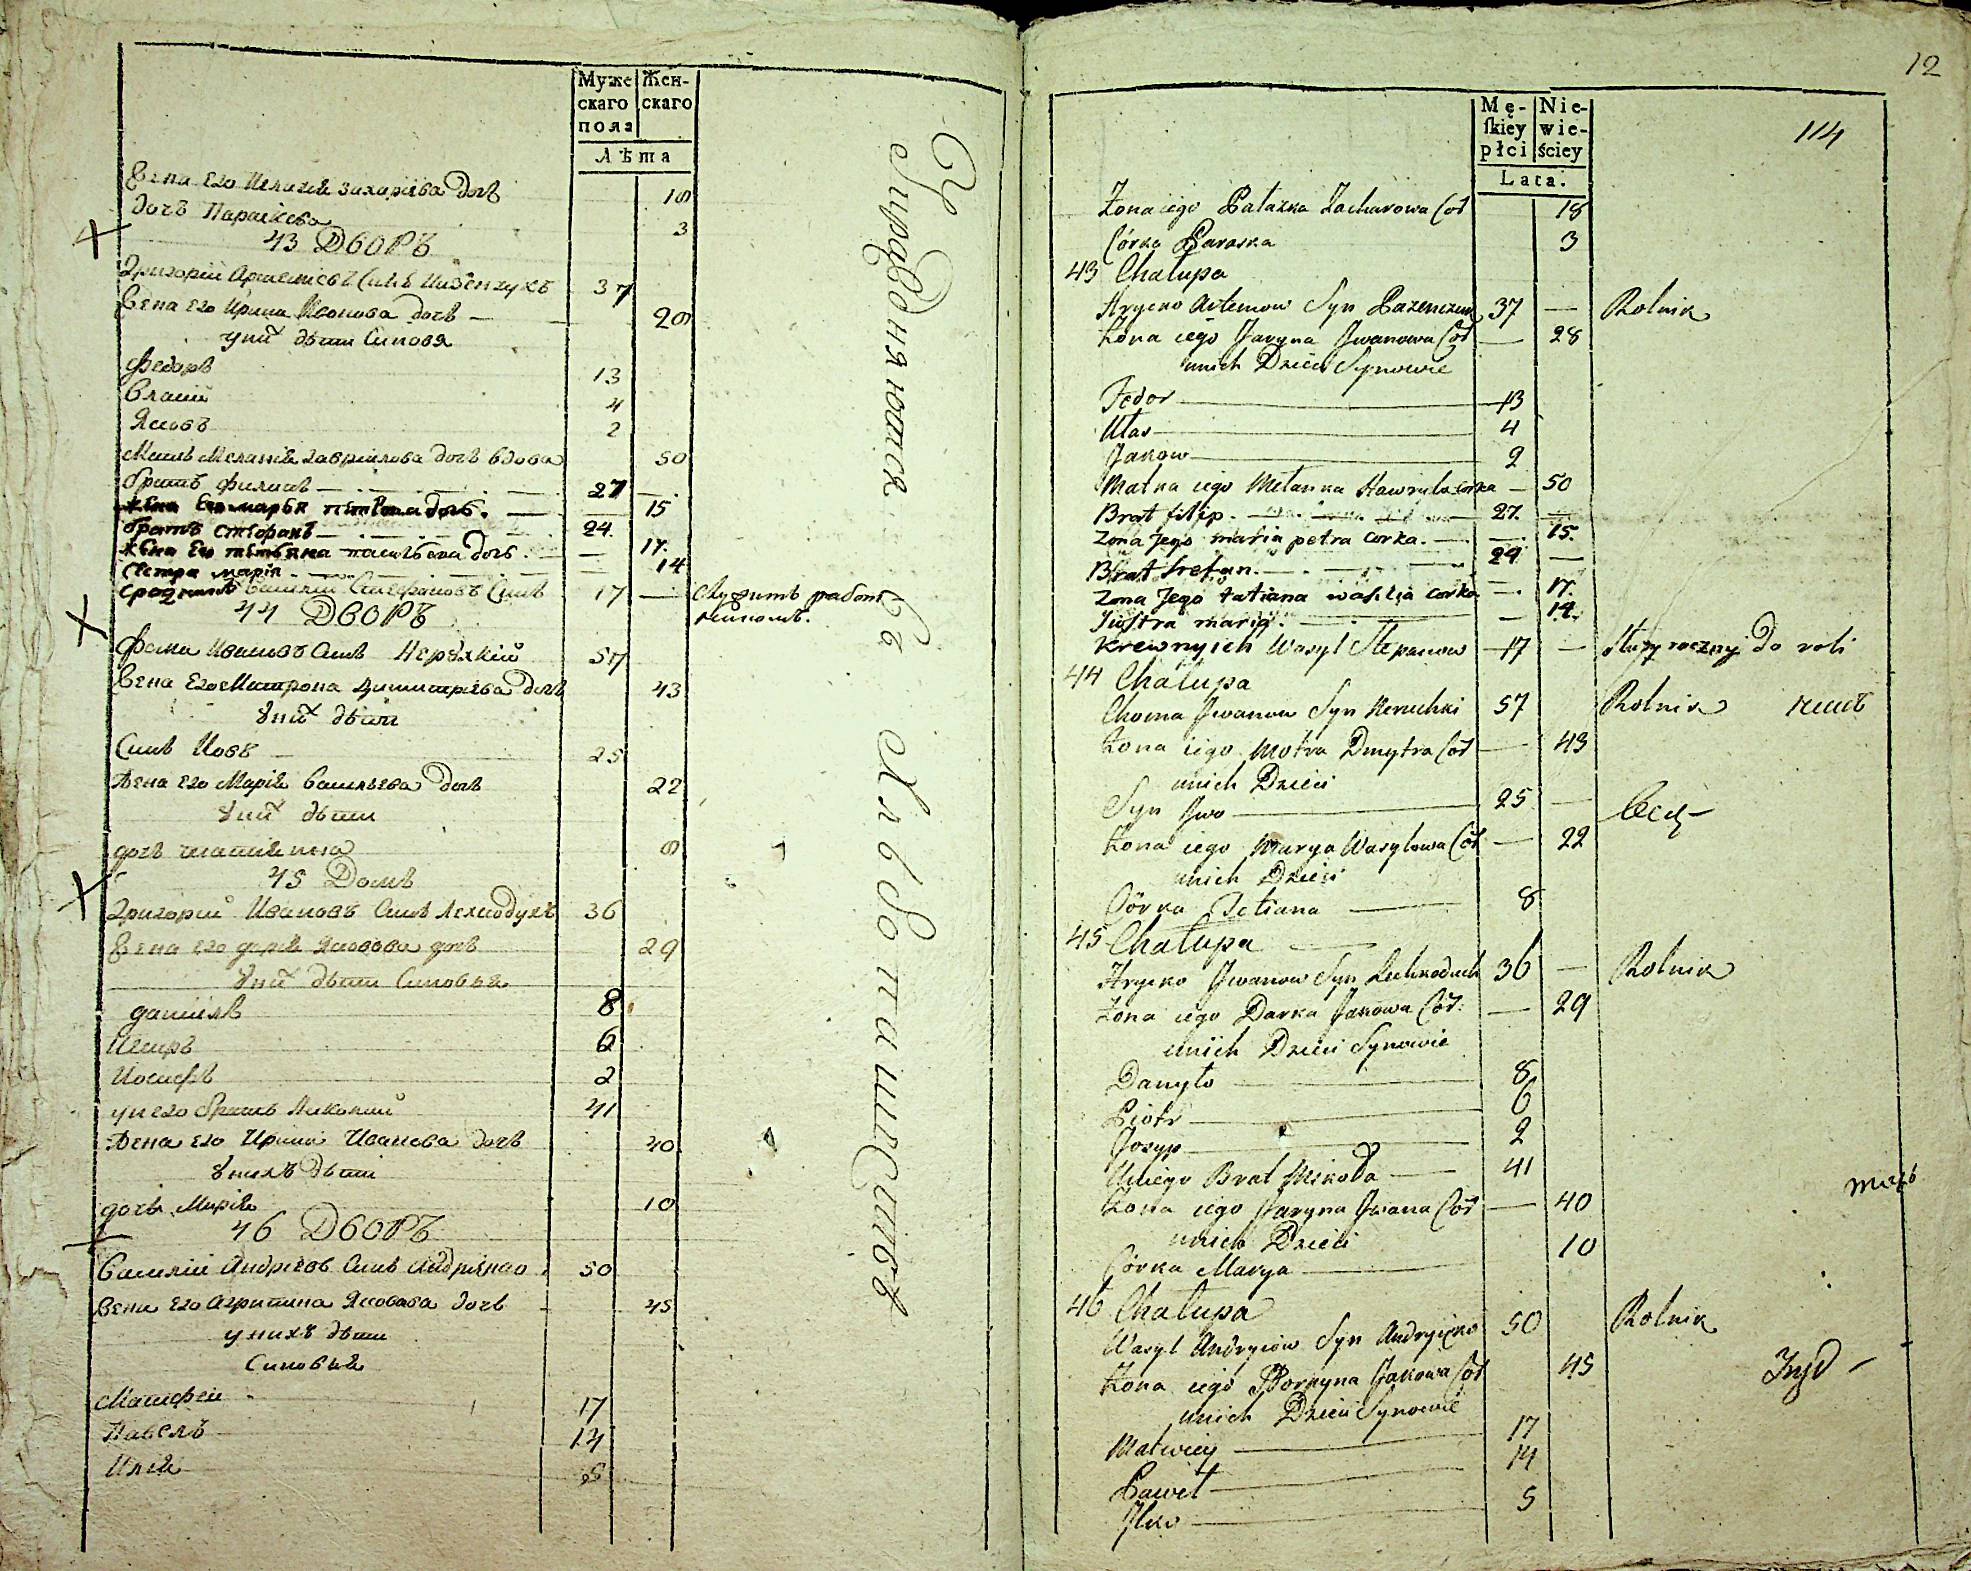 Муже
скаго
пола
Жен-
скаго
Лѣта
Жена его Пелагея Захарiева дочь 18
дочь Параскева 3
43 Дворъ
Григорий Артемiевъ Сынъ 37
Жена его Ирина Иванова дочь — 28
у них дѣти Синовя
Федоръ 13
Власий 4
Яковъ 2
Мать Меланiя Гавриилова дочь вдова 50
братъ Филипъ — 27 —
жена Его марья петрова дочь. — 15
братъ Стефанъ — 24.
жена Его татьяна васильева дочь. — 17.
Сестра мария — 14
Сродникъ Василий Стефановъ Сынъ 17 — Служитъ работ
44 Дворъ
Фома Ивановъ Сынъ 57
Жена Его Матрона Димитрiева дочь 43
у них дѣти
Синъ Иовъ 25
Жена его Марiя Василiева дочь 22
у них дѣти
дочь татiяна 8
45 Домъ
Григорий Ивановъ Синъ Лехнодухъ 36
Жена его дарiя Яковова дочь 29
у них дѣти Синовья
данiилъ 8
Петръ 6
Иосифъ 2
у него братъ Николай 41
Жена его Ирина Иванова дочь 40
у нихъ дѣти
дочь Марiя 10
46 Дворъ
Василий Андрiевъ Синъ 50
Жена его Агрипина Яковова дочь 45
у нихъ дѣти
Синовья
Матфей 17
Павелъ 14
Илiя 5
12
114
Mę-
skiey
płci
Nie-
wie-
ściey
Lata.
Żona iego Pałazka Zacharowa Cor 18
Córka Paraska 3
43 Chałupa
Hryćko Artemow Syn Pazenczuk 37 — Rolnik
Żona iego Jaryna Jwanowa Cor — 28
unich Dzieci Synowie
Fedor 13
Ułas 4
Jakow 2
Matka iego Mełanka Hawryła corka — 50
Brat filip. — 27.
Zona Jego maria petra corka. — 15.
Brat Stefan. — 24 —
Zona Jego tatiana wasila corka — 17.
Siostra maria. — 14.
Krewnyich Wasyl Stepanow 17 — Służy roczny do roli
44 Chałupa
Choma Jwanow Syn 57 Rolnik
Żona iego Motra Dmytra Cor — 43
unich Dzieci
Syn Jwo 25 —
Żona iego Marya Wasylowa Cor — 22
unich Dzieci
Córka Tetiana 8
45 Chałupa
Hryćko Jwanow Syn Lechnoduch 36 — Rolnik
Żona iego Darka Jakowa Cor. — 29
unich Dzieci Synowie
Danyło 8
Piotr 6
Josyp 2
Uniego Brat Mikoła 41
Żona iego Jaryna Jwana Cor — 40
unich Dzieci
Córka Marya 10
46 Chałupa
Wasyl Andryiow Syn Andryiczko 50 Rolnik
Żona iego Horpyna Jakowa Cor 45
unich Dzieci Synowie
Matwiey 17
Paweł 14
Jlko 5